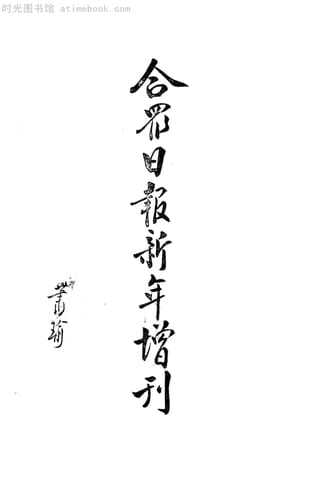 时光图书馆 atimebook.com
合眾日報新年增刊
蕭瑜